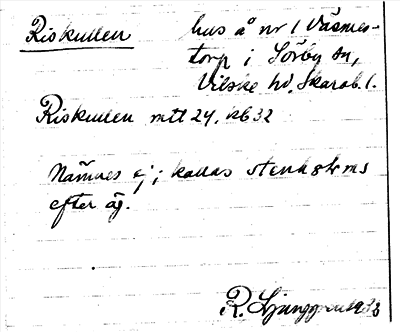 Riskullen hus å nr 1 Väsmes-
torp i Sörby sn,
Vilske hd, Skarab. l.
Riskullen mtt 24,
Nämnes ej; kallas stenströms
efter äg.
R. Ljunggren 1932